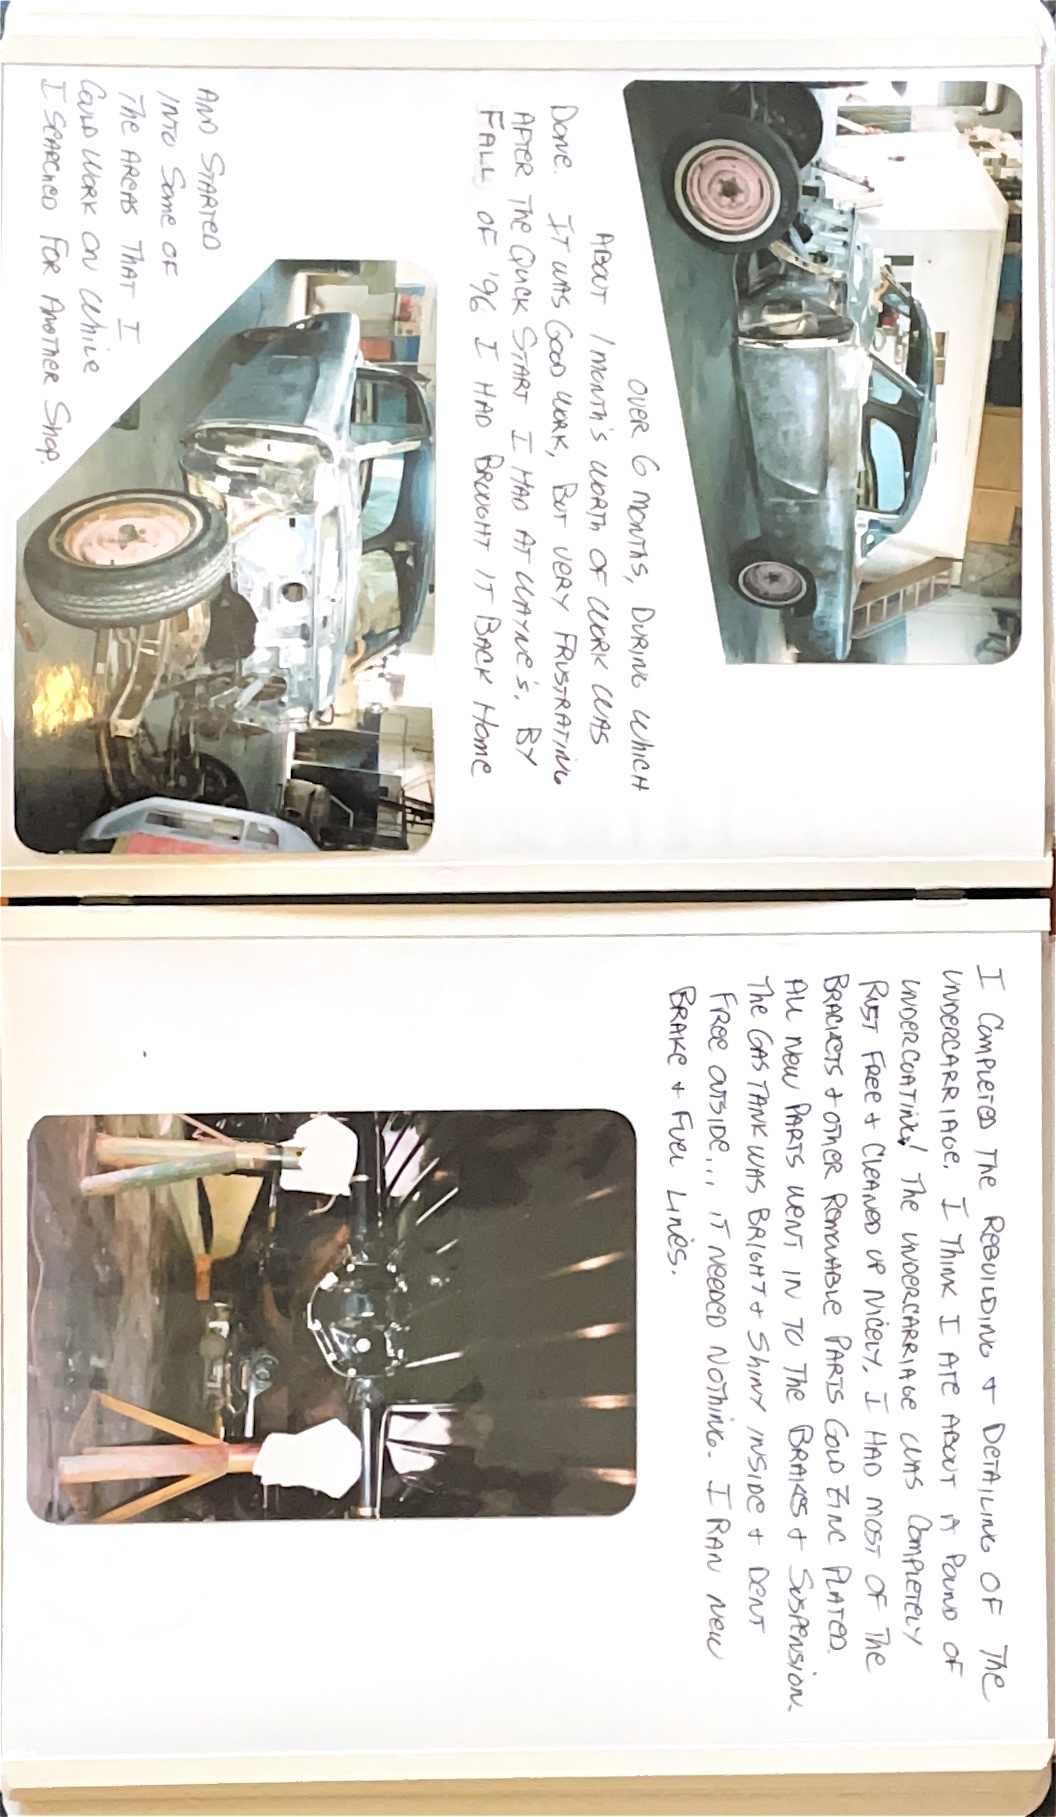 OVER 6 MONTHS, DURING WHICH
ABOUT 1 MONTH'S WORTH OF WORK WAS
DONE. IT WAS GOOD WORK, BUT VERY FRUSTRATING
AFTER THE QUICK START I HAD AT WAYNE'S. BY
FALL OF '96 I HAD BROUGHT IT BACK HOME
AND STARTED
INTO SOME OF
THE AREAS THAT I
COULD WORK ON WHILE
I SEARCHED FOR ANOTHER SHOP.
I COMPLETED THE REBUILDING + DETAILING OF THE
UNDERCARRIAGE. I THINK I ATE ABOUT A POUND OF
UNDERCOATING! THE UNDERCARRIAGE WAS COMPLETELY
RUST FREE + CLEANED UP NICELY. I HAD MOST OF THE
BRACKETS + OTHER REMOVABLE PARTS GOLD ZINC PLATED.
ALL NEW PARTS WENT IN TO THE BRAKES + SUSPENSION.
THE GAS TANK WAS BRIGHT + SHINY INSIDE + DENT
FREE OUTSIDE... IT NEEDED NOTHING. I RAN NEW
BRAKE + FUEL LINES.